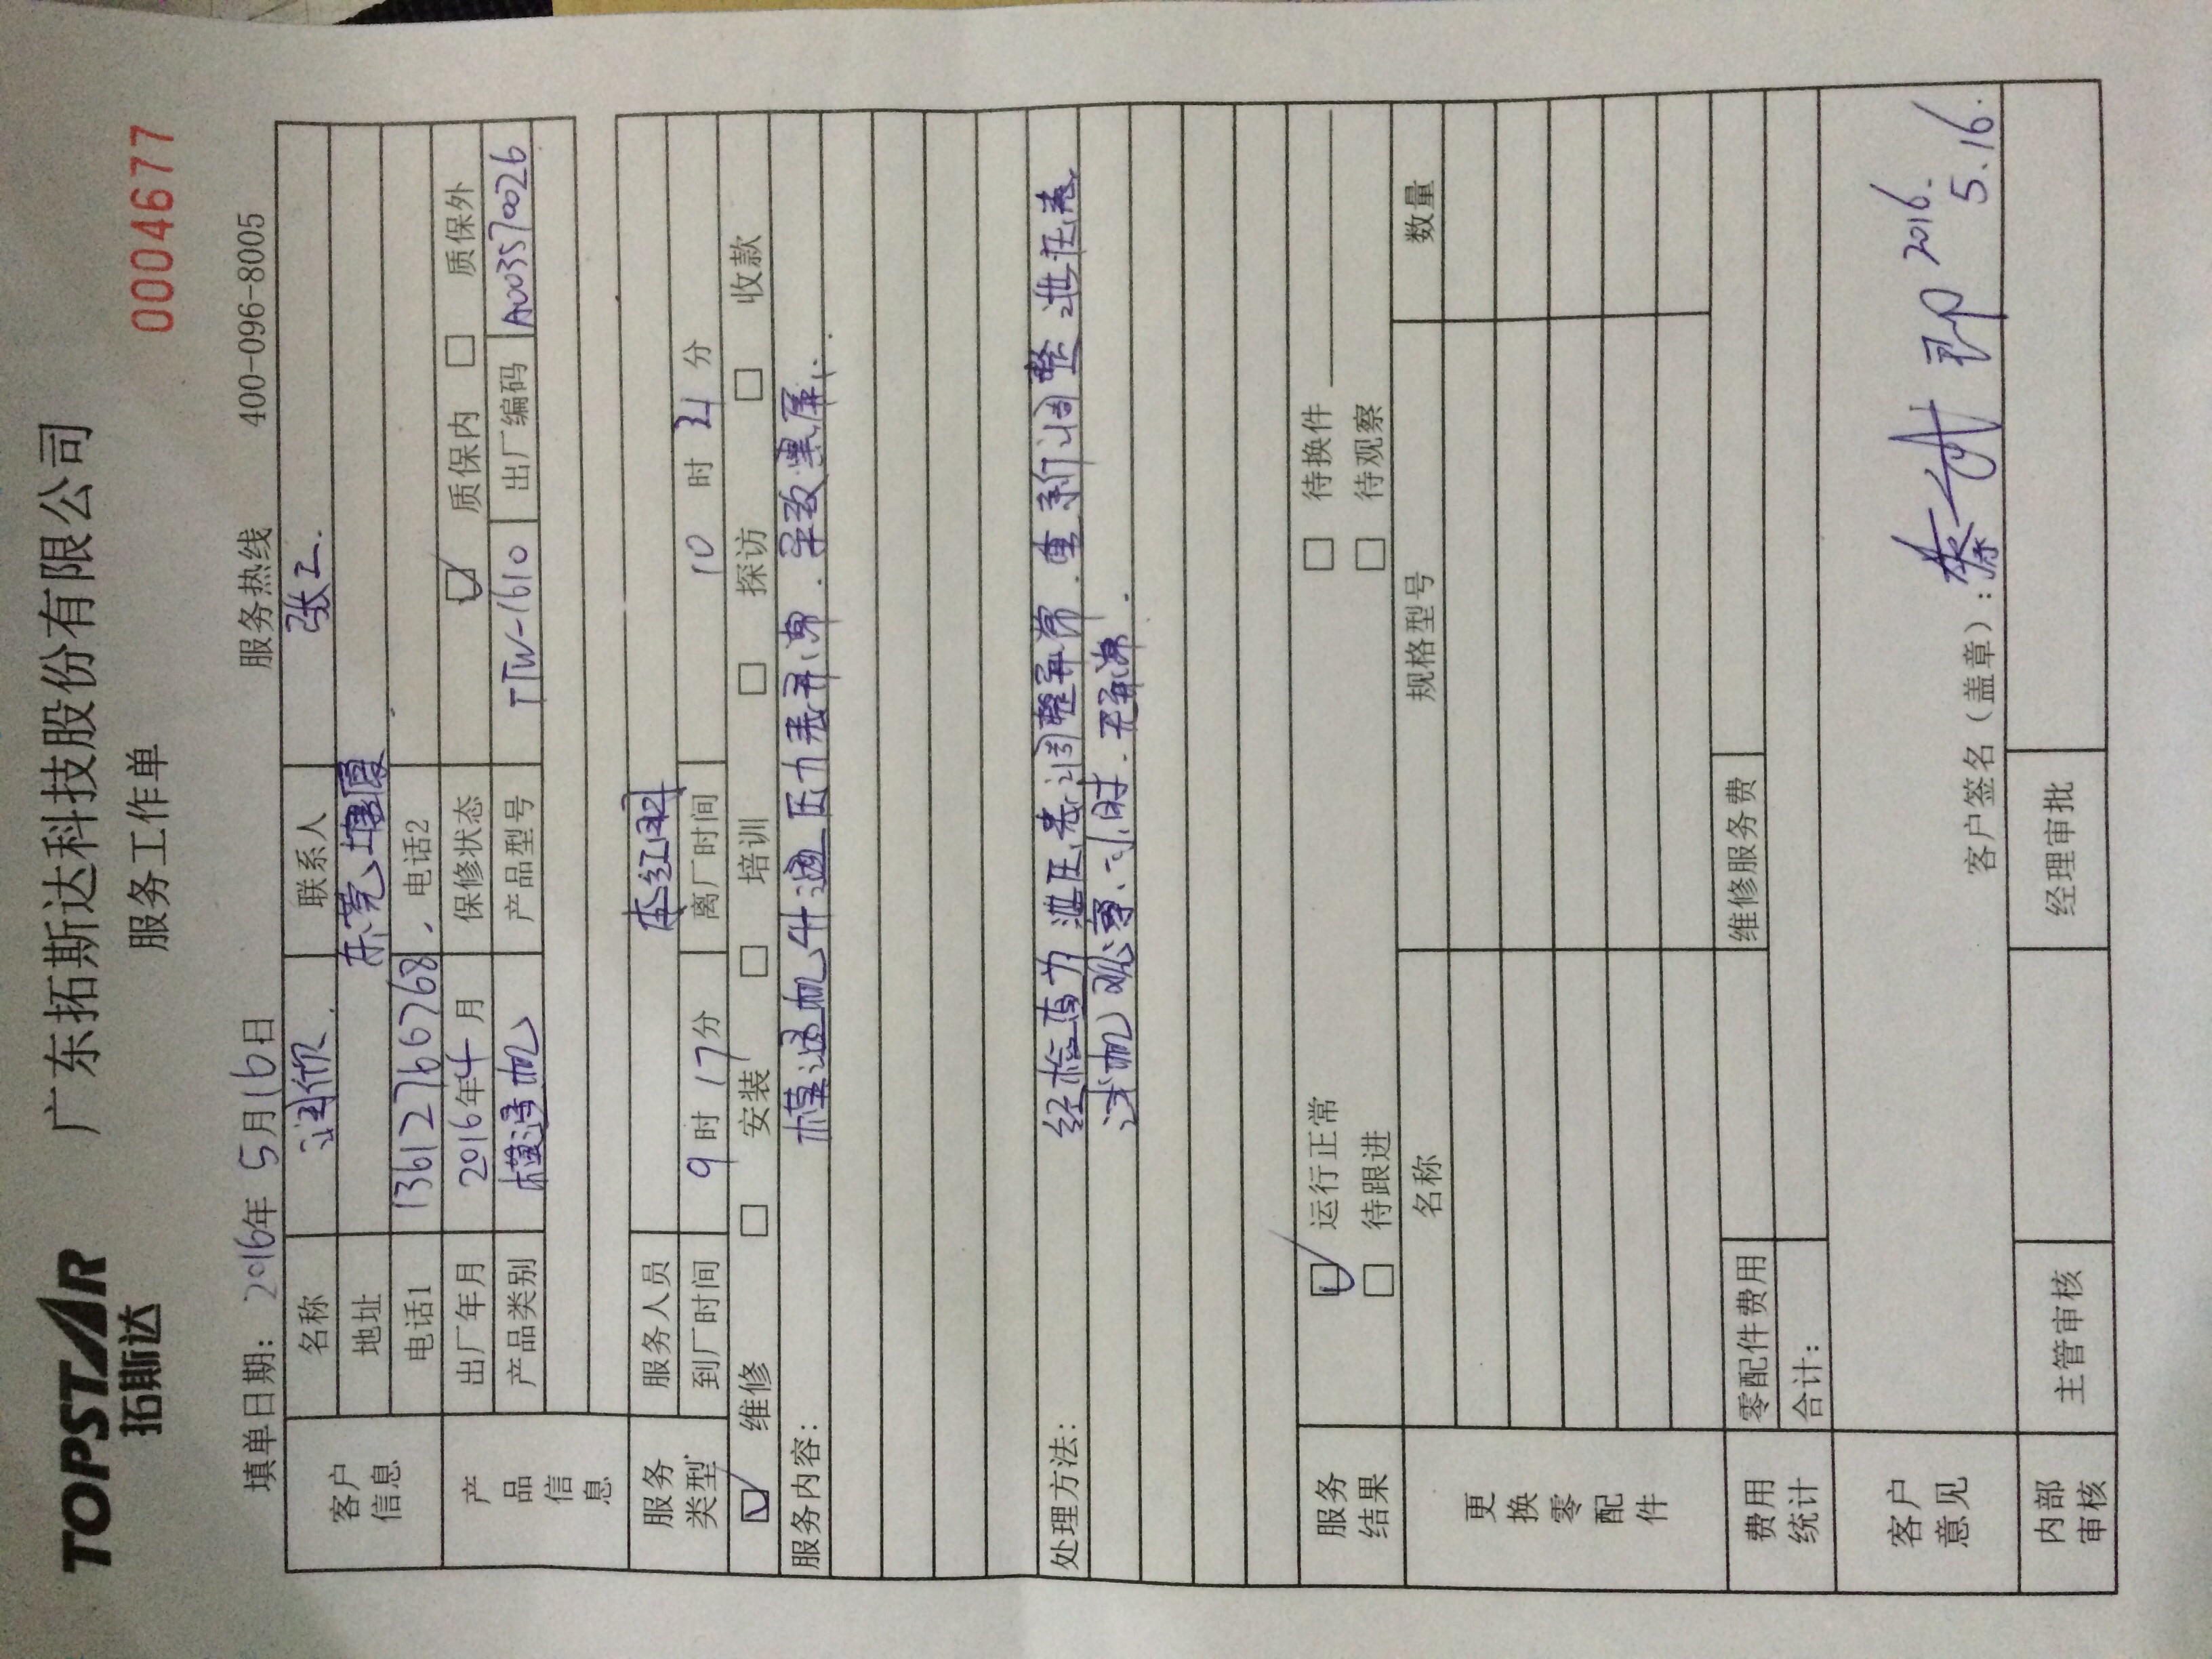 TOPSTAR
拓斯达
广东拓斯达科技股份有限公司
服务工作单
0004677
填单日期: 2016年 5月16日 服务热线 400-096-8005
客户信息 名称 联系人 张工.
地址 东莞
电话1 13612766768 电话2
产品信息 出厂年月 2016年4月 保修状态 质保内 质保外
产品类别 模温机 产品型号 TTW-1610 出厂编码 A003570026
服务类型 服务人员
到厂时间 9时17分 离厂时间 10时 分
维修 安装 培训 探访 收款
服务内容: 模温机 压力表异常. 导致黑屏.
处理方法: 经检查为泄压表调整异常. 重新调整泄压表
试机观察 小时. 无异常.
服务结果 运行正常 待换件
待跟进 待观察
更换零配件 名称 规格型号 数量
费用统计 零配件费用 维修服务费
合计:
客户意见
客户签名(盖章): 2016.
5.16.
内部审核 主管审核 经理审批